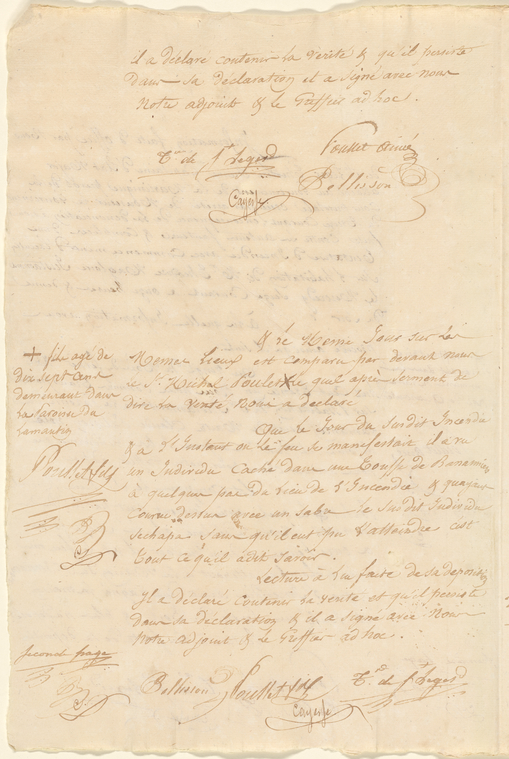 il a déclaré contenir la verité & qu'il persiste
dans sa déclaration et a signé avec nous
Notre adjoint & le Greffier ad hoc.
Poullet ainé
de St. Leger
Bellisson
& le Meme Jour sur les
Memes Lieux est comparu par devant nous
le Sr. Michel Poulet + lequel après serment de
dire la verité, nous a declaré
Que le Jour du Susdit Incendie
& a l'Instant ou le feu se manifestait il a vu
un Individu Caché dans une Touffe de Bananiers
à quelque pas du Lieu de l'Incendie & qu'ayant
Couru dessus avec un sabre le Susdit Individu
sechapa sans qu'il eut pu l'attaindre cest
tout ce qu'il a dit savoir.
Lecture à lui faite de sa deposition
Il a déclaré contenir la verité et qu'il persiste
dans sa déclaration & il a signé avec Nous
Notre adjoint & le Greffier ad hoc.
+ fils agé de
dix sept ans
demeurant dans
la Paroisse du
Lamantin
Poullet fils
second page
Bellisson
Poullet fils
de St. Leger